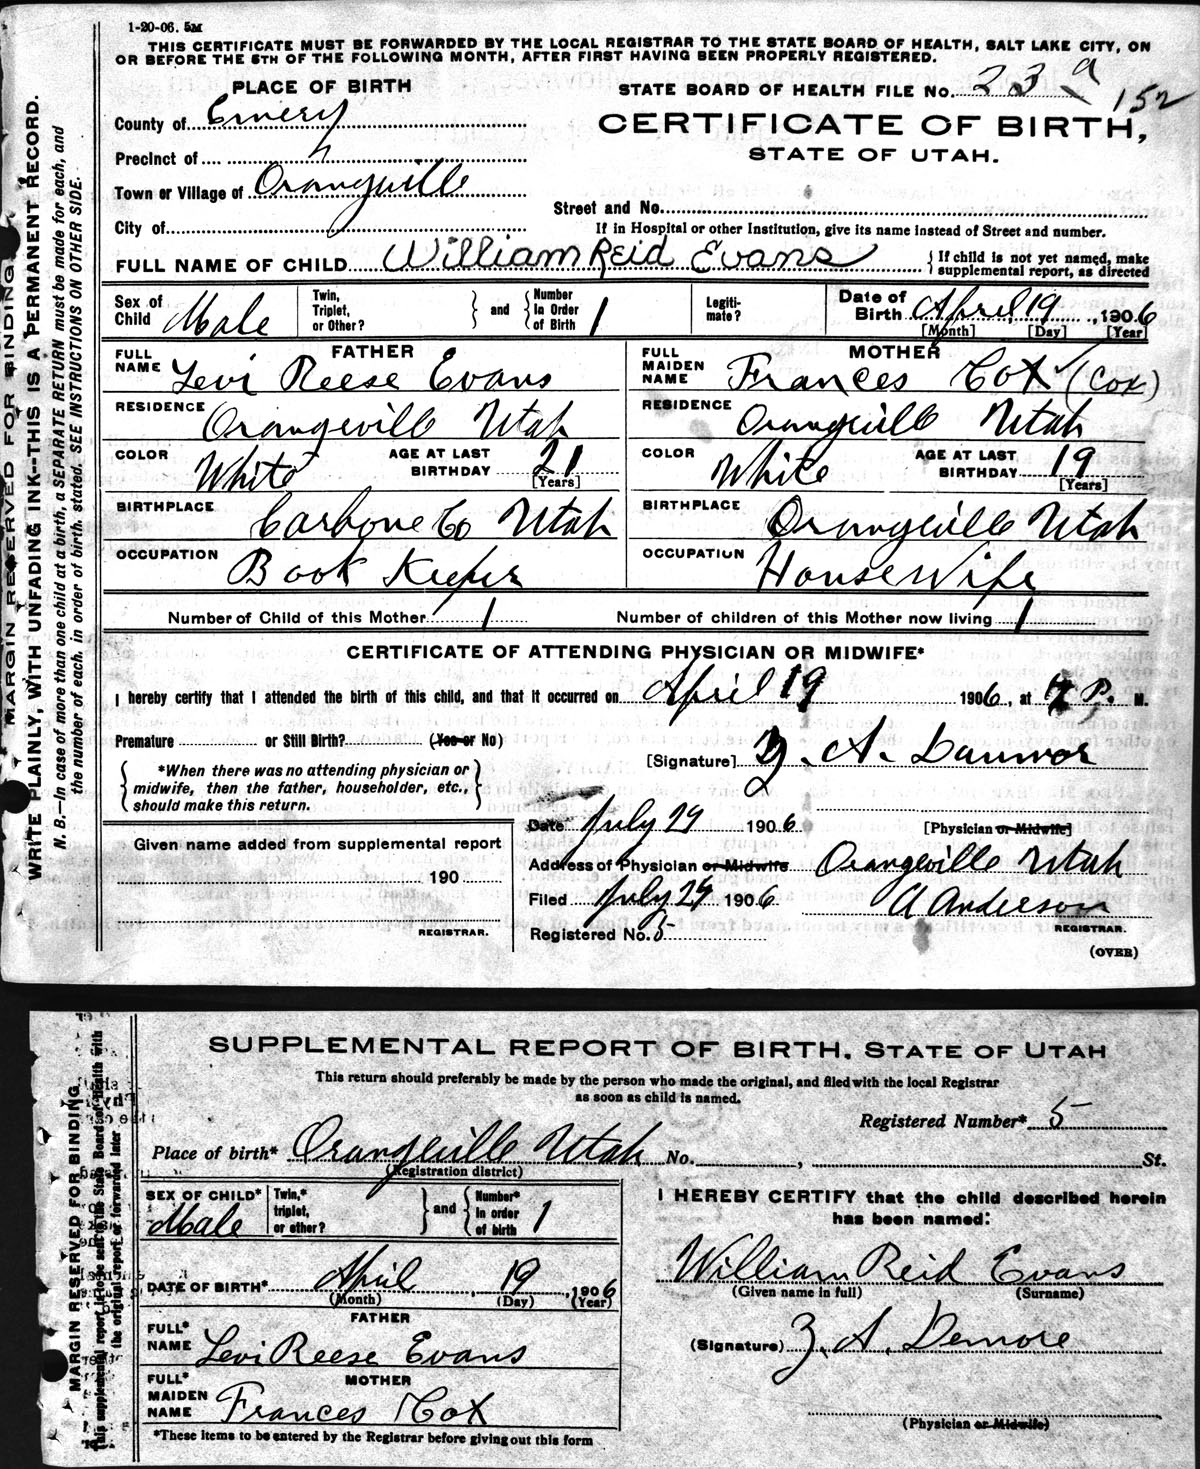 1-20-06. 5M
THIS CERTIFICATE MUST BE FORWARDED BY THE LOCAL REGISTRAR TO THE STATE BOARD OF HEALTH, SALT LAKE CITY, ON
OR BEFORE THE 5TH OF THE FOLLOWING MONTH, AFTER FIRST HAVING BEEN PROPERLY REGISTERED.
PLACE OF BIRTH
STATE BOARD OF HEALTH FILE No. 23 a 152
County of Emery
CERTIFICATE OF BIRTH,
STATE OF UTAH.
Precinct of
Town or Village of Orangeville
Street and No.
City of
If in Hospital or other Institution, give its name instead of Street and number.
FULL NAME OF CHILD William Reid Evans { If child is not yet named, make
supplemental report, as directed
Sex of Child Male
Twin, Triplet, or Other? } and { Number In Order of Birth 1
Legitimate?
Date of Birth April 19, 1906
[Month] [Day] [Year]
FATHER
FULL NAME Levi Reese Evans
RESIDENCE Orangeville Utah
COLOR White AGE AT LAST BIRTHDAY 21 [Years]
BIRTHPLACE Carbone Co Utah
OCCUPATION Book Keeper
MOTHER
FULL MAIDEN NAME Frances Cox (Cox)
RESIDENCE Orangeville Utah
COLOR White AGE AT LAST BIRTHDAY 19 [Years]
BIRTHPLACE Orangeville Utah
OCCUPATION House Wife
Number of Child of this Mother 1 Number of children of this Mother now living 1
CERTIFICATE OF ATTENDING PHYSICIAN OR MIDWIFE*
I hereby certify that I attended the birth of this child, and that it occurred on April 19 1906, at 7 P. M.
Premature or Still Birth? (Yes or No)
[Signature]
{ *When there was no attending physician or
midwife, then the father, householder, etc.,
should make this return. }
Date July 29 1906 [Physician or Midwife]
Given name added from supplemental report
190
REGISTRAR.
Address of Physician or Midwife Orangeville Utah
Filed July 29 1906 A Anderson
REGISTRAR.
Registered No. 5
(OVER)
MARGIN RESERVED FOR BINDING
WRITE PLAINLY, WITH UNFADING INK--THIS IS A PERMANENT RECORD.
N. B.—In case of more than one child at a birth, a SEPARATE RETURN must be made for each, and
the number of each, in order of birth, stated. SEE INSTRUCTIONS ON OTHER SIDE.
SUPPLEMENTAL REPORT OF BIRTH, STATE OF UTAH
This return should preferably be made by the person who made the original, and filed with the local Registrar
as soon as child is named.
Registered Number* 5
Place of birth* Orangeville Utah No. , St.
(Registration district)
SEX OF CHILD* Male
Twin,* triplet, or other? } and { Number* In order of birth 1
DATE OF BIRTH* April 19, 1906
(Month) (Day) (Year)
FATHER
FULL* NAME Levi Reese Evans
MOTHER
FULL* MAIDEN NAME Frances Cox
*These items to be entered by the Registrar before giving out this form
I HEREBY CERTIFY that the child described herein
has been named:
William Reid Evans
(Given name in full) (Surname)
(Signature) Z. A. Demore
(Physician or Midwife)
MARGIN RESERVED FOR BINDING
This supplemental report to be sent to the State Board of Health with
the original report or forwarded later